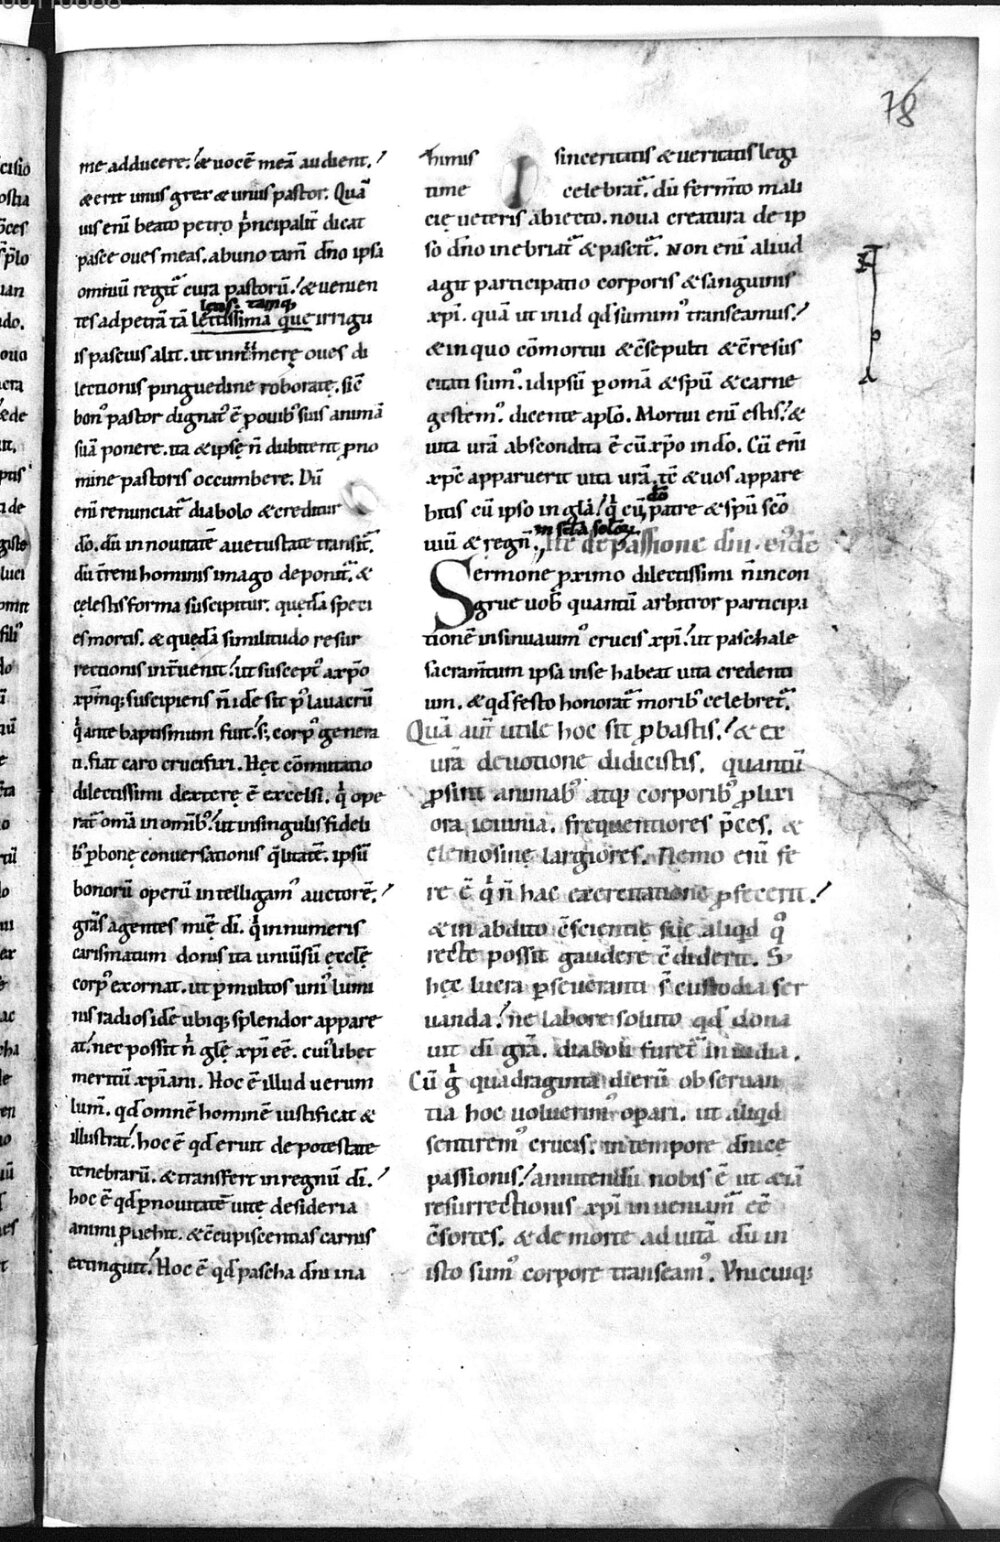 78
me adducere. & uocē meā audient.
& erit unus grex & unus pastor. Quā
uis eni beato petro p̄ncipalit̄ dicat̄
pasce oues meas. ab uno tam̄ dn̄o ipsa
omniū regit̄ cura pastorū. & uenien
tes ad petrā tā letissima que irrigu
is pascuis alit. ut innūmerę oues di
lectionis pinguedine roboratę. sic̄
bon᷒ pastor dignat᷒ ē p ouib᷒ suis animā
suā ponere. ita & ipsę n̄ dubitent p no
mine pastoris occumbere. Dū
eni renunciat̄ diabolo & creditur
dō. dū in nouitatē a uetustate transit̄.
dū t̄reni hominis imago deponit̄. &
cęlestis forma suscipitur. quędā speci
es mortis. & quędā similitudo resur
rectionis int̄uenit. ut suscept᷒ a xp̄o
xp̄mq; suscipiens n̄ idē sit p᷒ lauacrū
q̇ ante baptismum fuit. s; corp᷒ genera
ti. fiat caro crucifixi. Hęc cōmutatio
dilectissimi dexterę ē excelsi. q̇ ope
rat̄ omā in omib᷒. ut in singulis fideli
b᷒ p bonę conuersationis q̄litatē. ipsū
bonorū operū intelligam᷒ auctorē.
grās agentes mīę dī. q̇ innumeris
carismatum donis ita uniūsū ęcclę
corp᷒ exornat. ut p multos uni᷒ lumi
nis radios idē ubiq; splendor appare
at. nec possit n̄ glę xp̄i eē. cui᷒libet
meritū xp̄iani. Hoc ē illud uerum
lum̄. qd̄ omnē hominē iustificat &
illustrat. hoc ē qd̄ eruit de potestate
tenebrarū. & transfert in regnū dī.
hoc ē qd̄ p nouitatē uitę desideria
animi puehit. & c̄cupiscentias carnis
extinguit. Hoc ē qd̄ pascha dn̄i in a
himis I sinceritatis & ueritatis legi
time celebrat̄. dū ferm̄to mali
cię ueteris abiecto. noua creatura de ip
so dn̄o inebriat̄ & pascit̄. Non eni aliud
agit participatio corporis & sanguinis
xp̄i. quā ut in id qd̄ sumim᷒ transeamus.
& in quo cōmortui & c̄sepulti & c̄resus
citati sum᷒. id ipsū p omā & spū & carne
gestem᷒. dicente aplō. Mortui eni estis. &
uita urā abscondita ē cū xp̄o in dō. Cū eni
xp̄c apparuerit uita urā. tē & uos appare
bitis cū ipso in glā. q̇ cū dō patre & spū scō
uiu & regn᷒. in sclā sclōꝝ. Itē de passione dn̄i. ei᷒dē
Sermone pximo dilectissimi n̄ incon
grue uob᷒ quantū arbitror participa
tionē insinuauim᷒ crucis xp̄i. ut paschale
sacram̄tum ipsa in se habeat uita credenti
um. & qd̄ festo honorat̄ morib᷒ celebret̄.
Quā aut̄ utile hoc sit pbastis. & ex
urā deuotione didicistis. quantū
psint animab᷒ atq; corporib᷒ plixi
ora ieiunia. frequentiores p̄ces. &
elemosinę largiores. Nemo eni fe
re ē q̇ n̄ hac exercitatione pfecerit.
& in abdito c̄scientię suę aliqd q᷒
recte possit gaudere c̄diderit. S;
hęc lucra pseueranti s̄ custodia ser
uanda. ne labore soluto qd̄ dona
uit dī grā. diaboli furet̄ inuidia.
Cū ḡ quadraginta dierū obseruan
tia hoc uoluerim᷒ opari. ut aliqd
sentirem᷒ crucis. in tempore dn̄icę
passionis. annitendū nobis ē ut & iā
resurrectionis xp̄i inueniam̄ eē
c̄sortes. & de morte ad uitā dū in
isto sum᷒ corpore transeam᷒. Vnicuiq;